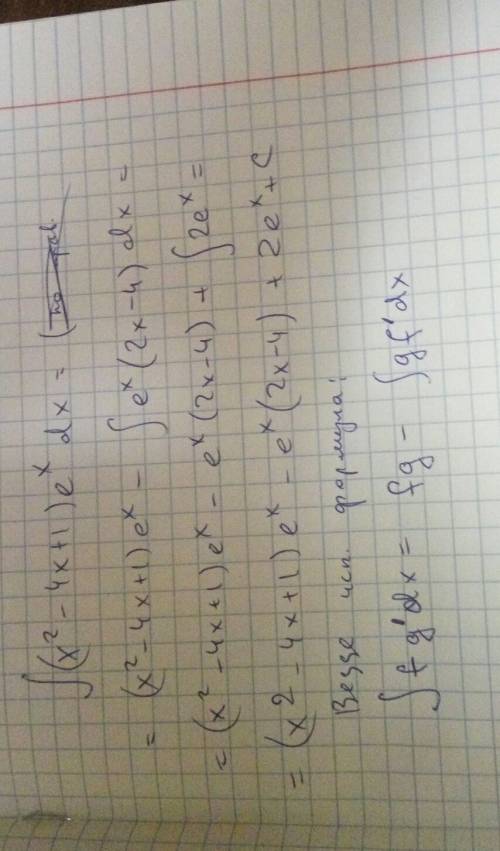 ∫(x² - 4x + 1)eˣ dx = (
= (x² - 4x + 1)eˣ - ∫eˣ(2x - 4) dx =
= (x² - 4x + 1)eˣ - eˣ(2x - 4) + ∫2eˣ =
= (x2 - 4x + 1)eˣ - eˣ(2x - 4) + 2eˣ + C
Везде исп. формула:
∫fg'dx = fg - ∫gf'dx